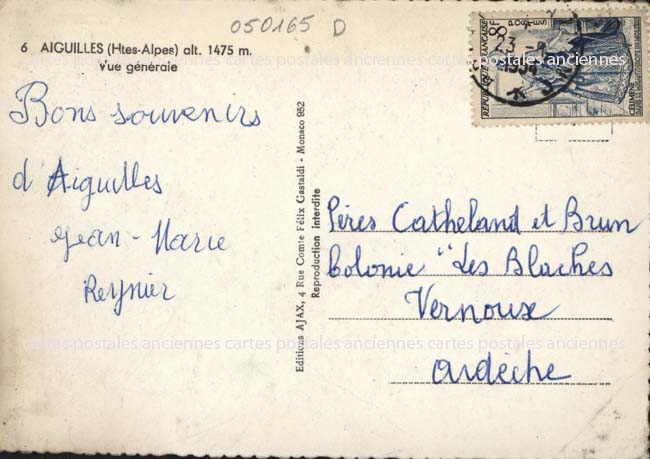 050165 D
6 AIGUILLES (Htes-Alpes) alt. 1475 m.
Vue générale
Bons souvenirs
d'Aiguilles
Jean-Marie
Reynier
Editions AJAX, 4 Rue Comte Félix Gastaldi - Monaco 952
Reproduction interdite
REPUBLIQUE FRANÇAISE
8F
POSTES
CELIMENE
23 -8
1954
Pères Catheland et Brun
Colonie "Les Blaches
Vernoux
Ardèche
cartes postales anciennes cartes postales anciennes cartes postales anciennes
cartes postales anciennes cartes postales anciennes cartes postales anciennes